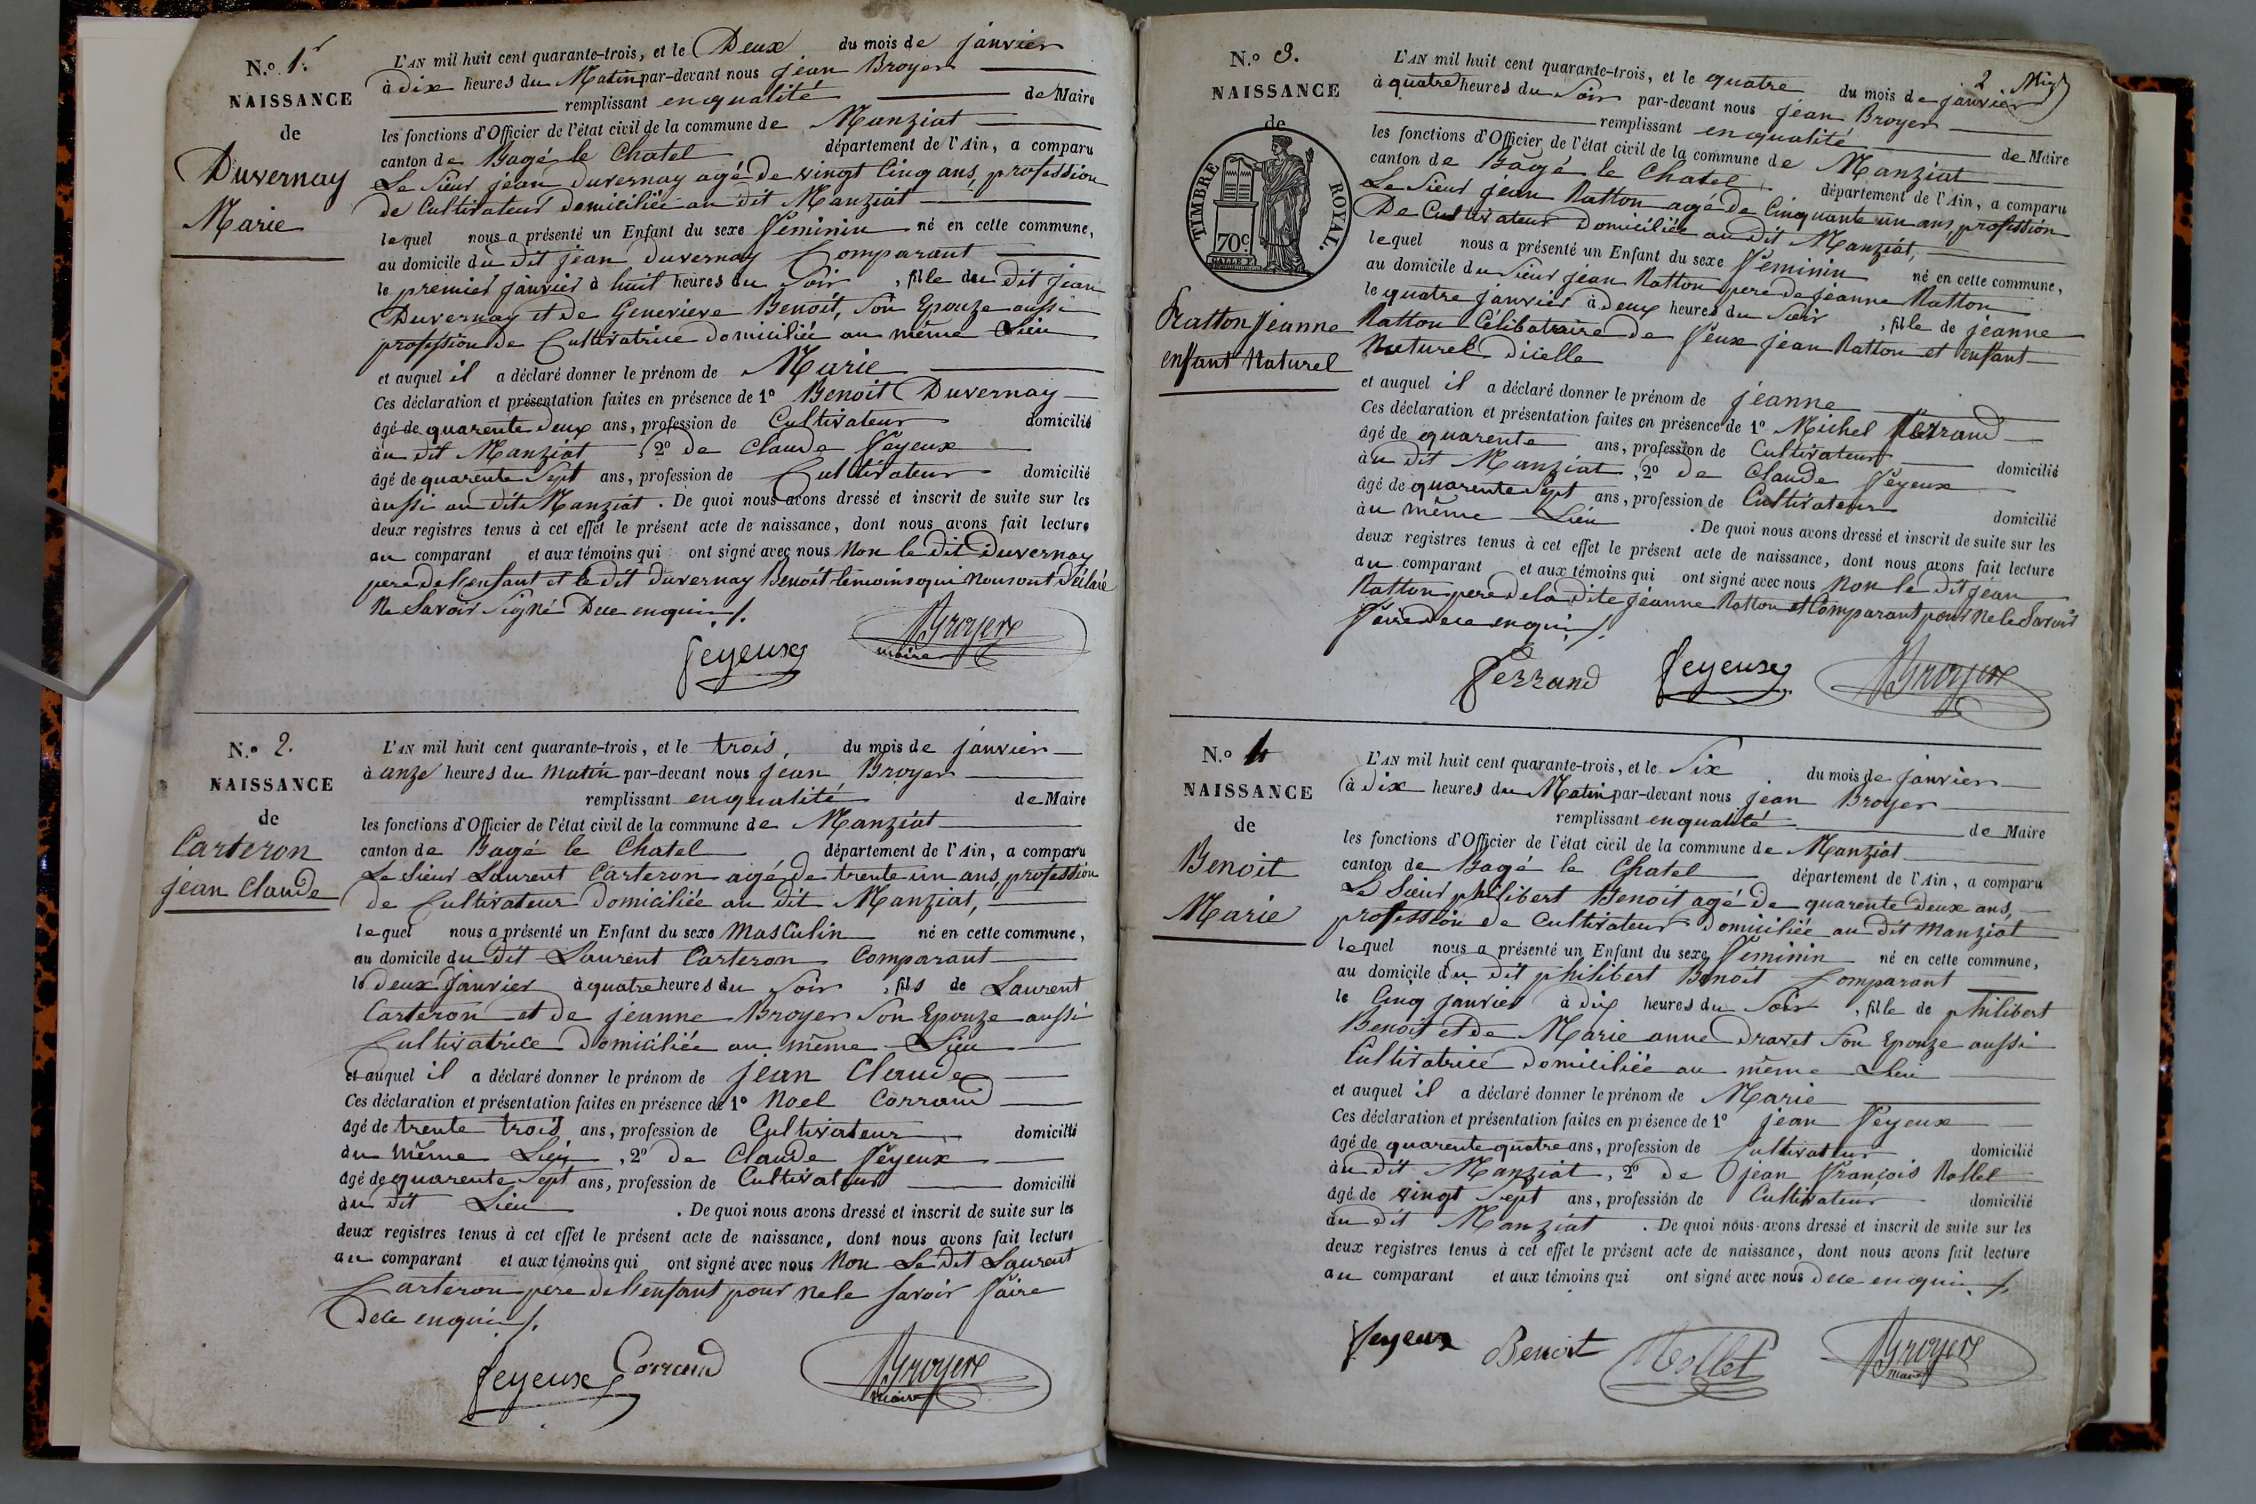 N.o 1.r
NAISSANCE
de
Duvernay
Marie
L'AN mil huit cent quarante-trois, et le Deux du mois de janvier
à dix heures du Matin par-devant nous jean Broyer
remplissant en qualité de Maire
les fonctions d'Officier de l'état civil de la commune de Manziat
canton de Bagé le Chatel département de l'Ain, a comparu
Le Sieur jean Duvernay agé de vingt Cinq ans, profession
de Cultivateur domiciliée au dit Manziat
lequel nous a présenté un Enfant du sexe Féminin né en cette commune,
au domicile du dit jean Duvernay Comparant
le premier janvier à huit heures du Soir, fille du dit jean
Duvernay et de Genevieve Benoit, Son Epouze aussi
profession de Cultivatrice domiciliée au même Lieu
et auquel il a déclaré donner le prénom de Marie
Ces déclaration et présentation faites en présence de 1o Benoit Duvernay
âgé de quarente deux ans, profession de Cultivateur domicilié
au dit Manziat 2o de Claude Feyeux
âgé de quarente Sept ans, profession de Cultivateur domicilié
aussi au dit Manziat. De quoi nous avons dressé et inscrit de suite sur les
deux registres tenus à cet effet le présent acte de naissance, dont nous avons fait lecture
au comparant et aux témoins qui ont signé avec nous Non le dit Duvernay
pere de l'enfant et le dit Duvernay Benoit temoins qui nous ont déclaré
Ne Savoir Signé Dece enquis /.
Feyeux Broyer
maire
N.o 2.
NAISSANCE
de
Carteron
jean Claude
L'AN mil huit cent quarante-trois, et le trois, du mois de janvier
à onze heures du matin par-devant nous jean Broyer
remplissant en qualité de Maire
les fonctions d'Officier de l'état civil de la commune de Manziat
canton de Bagé le Chatel département de l'Ain, a comparu
Le Sieur Laurent Carteron agé de trente un ans, profession
de Cultivateur domiciliée au dit Manziat,
lequel nous a présenté un Enfant du sexe Masculin né en cette commune,
au domicile du dit Laurent Carteron Comparant
le deux janvier à quatre heures du Soir, fils de Laurent
Carteron et de jeanne Broyer Son Epouze aussi
Cultivatrice domiciliée au même Lieu
et auquel il a déclaré donner le prénom de jean Claude
Ces déclaration et présentation faites en présence de 1o Noel Corrand
âgé de trente trois ans, profession de Cultivateur domicilié
au même Lieu, 2o de Claude Feyeux
âgé de quarente Sept ans, profession de Cultivateur domicilié
au dit Lieu. De quoi nous avons dressé et inscrit de suite sur les
deux registres tenus à cet effet le présent acte de naissance, dont nous avons fait lecture
au comparant et aux témoins qui ont signé avec nous Non Le dit Laurent
Carteron pere de l'enfant pour ne le savoir faire
dece enquis /.
Feyeux Corrand Broyer
maire
N.o 3.
NAISSANCE
de
TIMBRE ROYAL.
70c
Ratton jeanne
enfant Naturel
2
L'AN mil huit cent quarante-trois, et le quatre du mois de janvier
à quatre heures du Soir par-devant nous jean Broyer
remplissant en qualité de Maire
les fonctions d'Officier de l'état civil de la commune de Manziat
canton de Bagé le Chatel département de l'Ain, a comparu
Le Sieur jean Ratton agé de Cinquante un ans, profession
De Cultivateur Domiciliée au dit Manziat,
lequel nous a présenté un Enfant du sexe Féminin né en cette commune,
au domicile du Sieur jean Ratton pere de jeanne Ratton
le quatre janvier à deux heures du Soir, fille de jeanne
Ratton Célibataire de Feux jean Ratton et enfant
Naturel dicelle
et auquel il a déclaré donner le prénom de jeanne
Ces déclaration et présentation faites en présence de 1o Michel Ferrand
âgé de quarente ans, profession de Cultivateur domicilié
au dit Manziat, 2o de Claude Feyeux
âgé de quarente Sept ans, profession de Cultivateur domicilié
au même Lieu. De quoi nous avons dressé et inscrit de suite sur les
deux registres tenus à cet effet le présent acte de naissance, dont nous avons fait lecture
au comparant et aux témoins qui ont signé avec nous Non le dit jean
Ratton pere de la dite jeanne Ratton et Comparant pour ne le Savoir
Faire dece enquis /.
Ferrand Feyeux Broyer
N.o 4
NAISSANCE
de
Benoit
Marie
L'AN mil huit cent quarante-trois, et le Six du mois de janvier
à dix heures du Matin par-devant nous jean Broyer
remplissant en qualité de Maire
les fonctions d'Officier de l'état civil de la commune de Manziat
canton de Bagé le Chatel département de l'Ain, a comparu
Le Sieur philibert Benoit agé de quarente deux ans,
profession de Cultivateur domiciliée au dit Manziat
lequel nous a présenté un Enfant du sexe Féminin né en cette commune,
au domicile du dit philibert Benoit Comparant
le Cinq janvier à dix heures du Soir, fille de philibert
Benoit et de Marie anne Dravet Son Epouze aussi
Cultivatrice domiciliée au même Lieu
et auquel il a déclaré donner le prénom de Marie
Ces déclaration et présentation faites en présence de 1o jean Feyeux
âgé de quarente quatre ans, profession de Cultivateur domicilié
au dit Manziat, 2o de jean François Rollet
âgé de vingt Sept ans, profession de Cultivateur domicilié
au dit Manziat. De quoi nous avons dressé et inscrit de suite sur les
deux registres tenus à cet effet le présent acte de naissance, dont nous avons fait lecture
au comparant et aux témoins qui ont signé avec nous dece enquis /.
Feyeux Benoit Rollet Broyer
maire